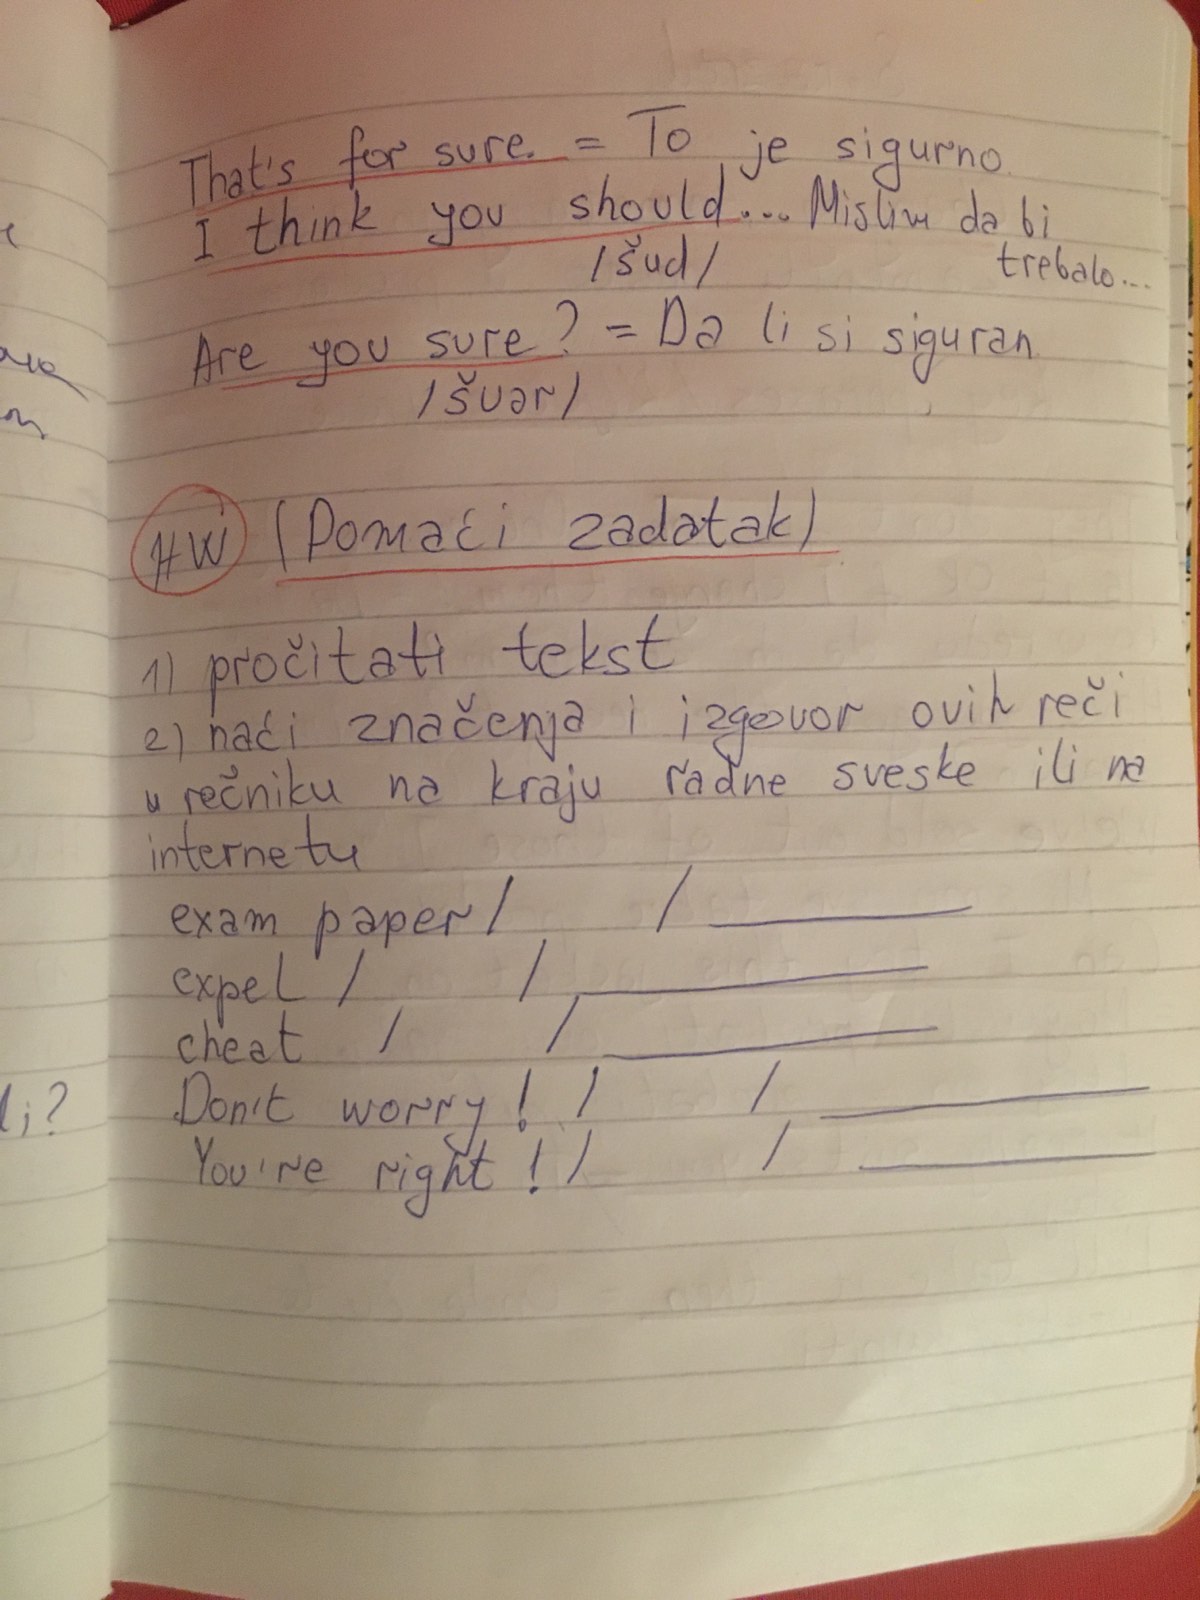 That's for sure. = To je sigurno.
I think you should... Mislim da bi
/šud/ trebalo...
Are you sure? = Da li si siguran
/šuər/
HW (Domaći zadatak)
1) pročitati tekst
2) naći značenja i izgovor ovih reči
u rečniku na kraju radne sveske ili na
internetu
exam paper / /
expel / /
cheat / /
Don't worry! / /
You're right! / /
li?